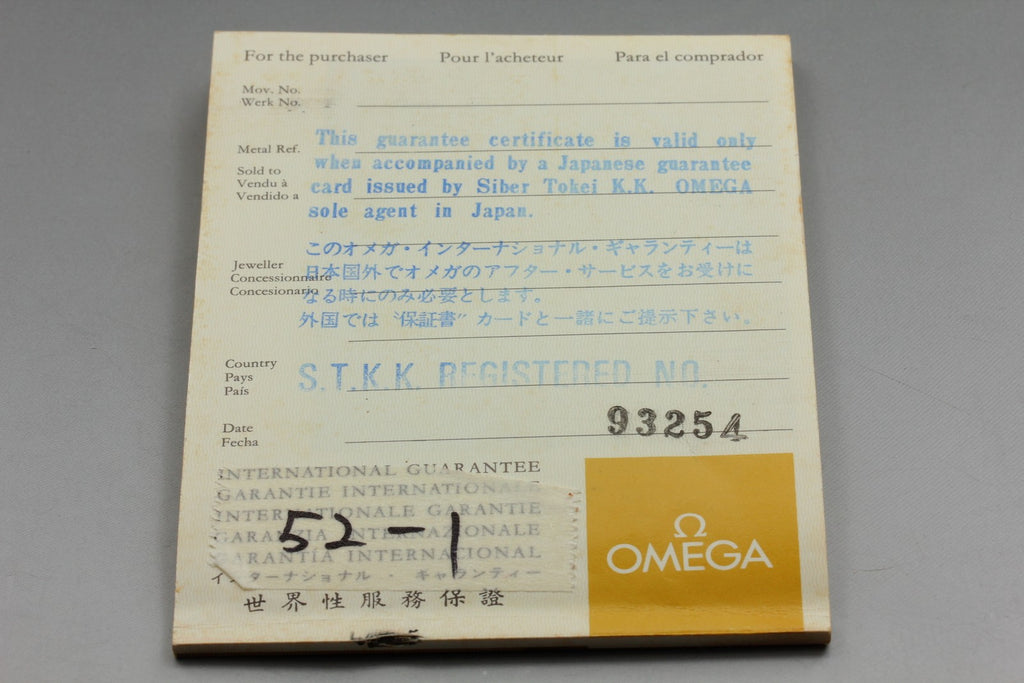 For the purchaser Pour l'acheteur Para el comprador
Mov. No.
Werk No.
Metal Ref.
This guarantee certificate is valid only
when accompanied by a Japanese guarantee
card issued by Siber Tokei K.K. OMEGA
sole agent in Japan.
Sold to
Vendu à
Vendido a
このオメガ・インターナショナル・ギャランティーは
日本国外でオメガのアフター・サービスをお受けに
なる時にのみ必要とします。
外国では〝保証書〟カードと一諸にご提示下さい。
Jeweller
Concessionnaire
Concesionario
Country
Pays
País
S.T.K.K. REGISTERED NO.
93254
Date
Fecha
INTERNATIONAL GUARANTEE
GARANTIE INTERNATIONALE
INTERNATIONALE GARANTIE
GARANZIA INTERNAZIONALE
GARANTÍA INTERNACIONAL
インターナショナル・ギャランティー
世界性服務保證
52-1
Ω
OMEGA